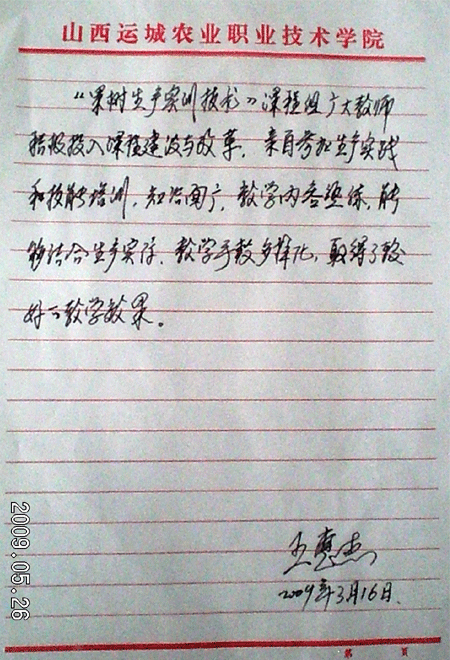 山西运城农业职业技术学院
“果树生产实训技术”课程组广大教师
积极投入课程建设与改革，亲自参加生产实践
和技能培训，知识面广，教学内容熟练，能
够结合生产实际，教学手段多样化，取得了较
好的教学效果。
王惠杰
2009年3月16日.
第 页
2009.05.26